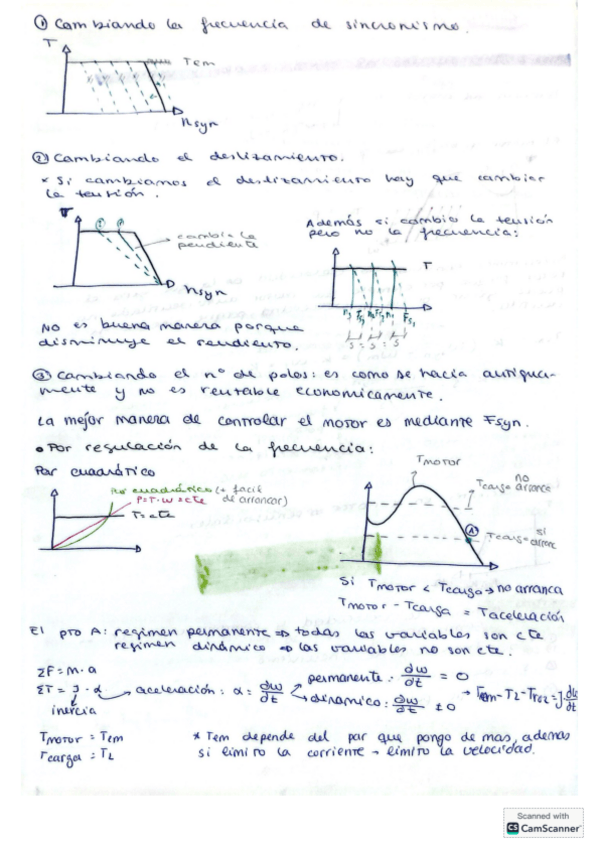 ① Cambiando la frecuencia de sincronismo.
T
Tem
nsyn
② Cambiando el deslizamiento.
* Si cambiamos el deslizamiento hay que cambiar
la tensión.
② ①
cambia la
pendiente
nsyn
Además si cambio la tensión
pero no la frecuencia:
T
s = s = s
NO es buena manera porque
disminuye el rendimiento.
③ Cambiando el nº de polos: es como se hacía antigua-
mente y no es rentable economicamente.
La mejor manera de controlar el motor es mediante Fsyn.
• Por regulación de la frecuencia:
Par cuadrático
cuadrático (+ facil
de arrancar)
P=T·w=cte
T=cte
Tmotor
Tcarga no
arranca
A
Tcarga si
arranc
Si Tmotor < Tcarga → no arranca
Tmotor - Tcarga = Taceleración
El pto A: regimen permanente ⇒ todas las variables son cte
regimen dinámico ⇒ las variables no son cte.
ΣF = m·a
ΣT = J·α → aceleración: α = dw/dt
permanente: dw/dt = 0
dinámico: dw/dt ≠ 0
inercia
Tmotor = Tem
Tcarga = TL
* Tem depende del par que pongo de mas, además
si limito la corriente → limito la velocidad.
Scanned with
CS CamScanner